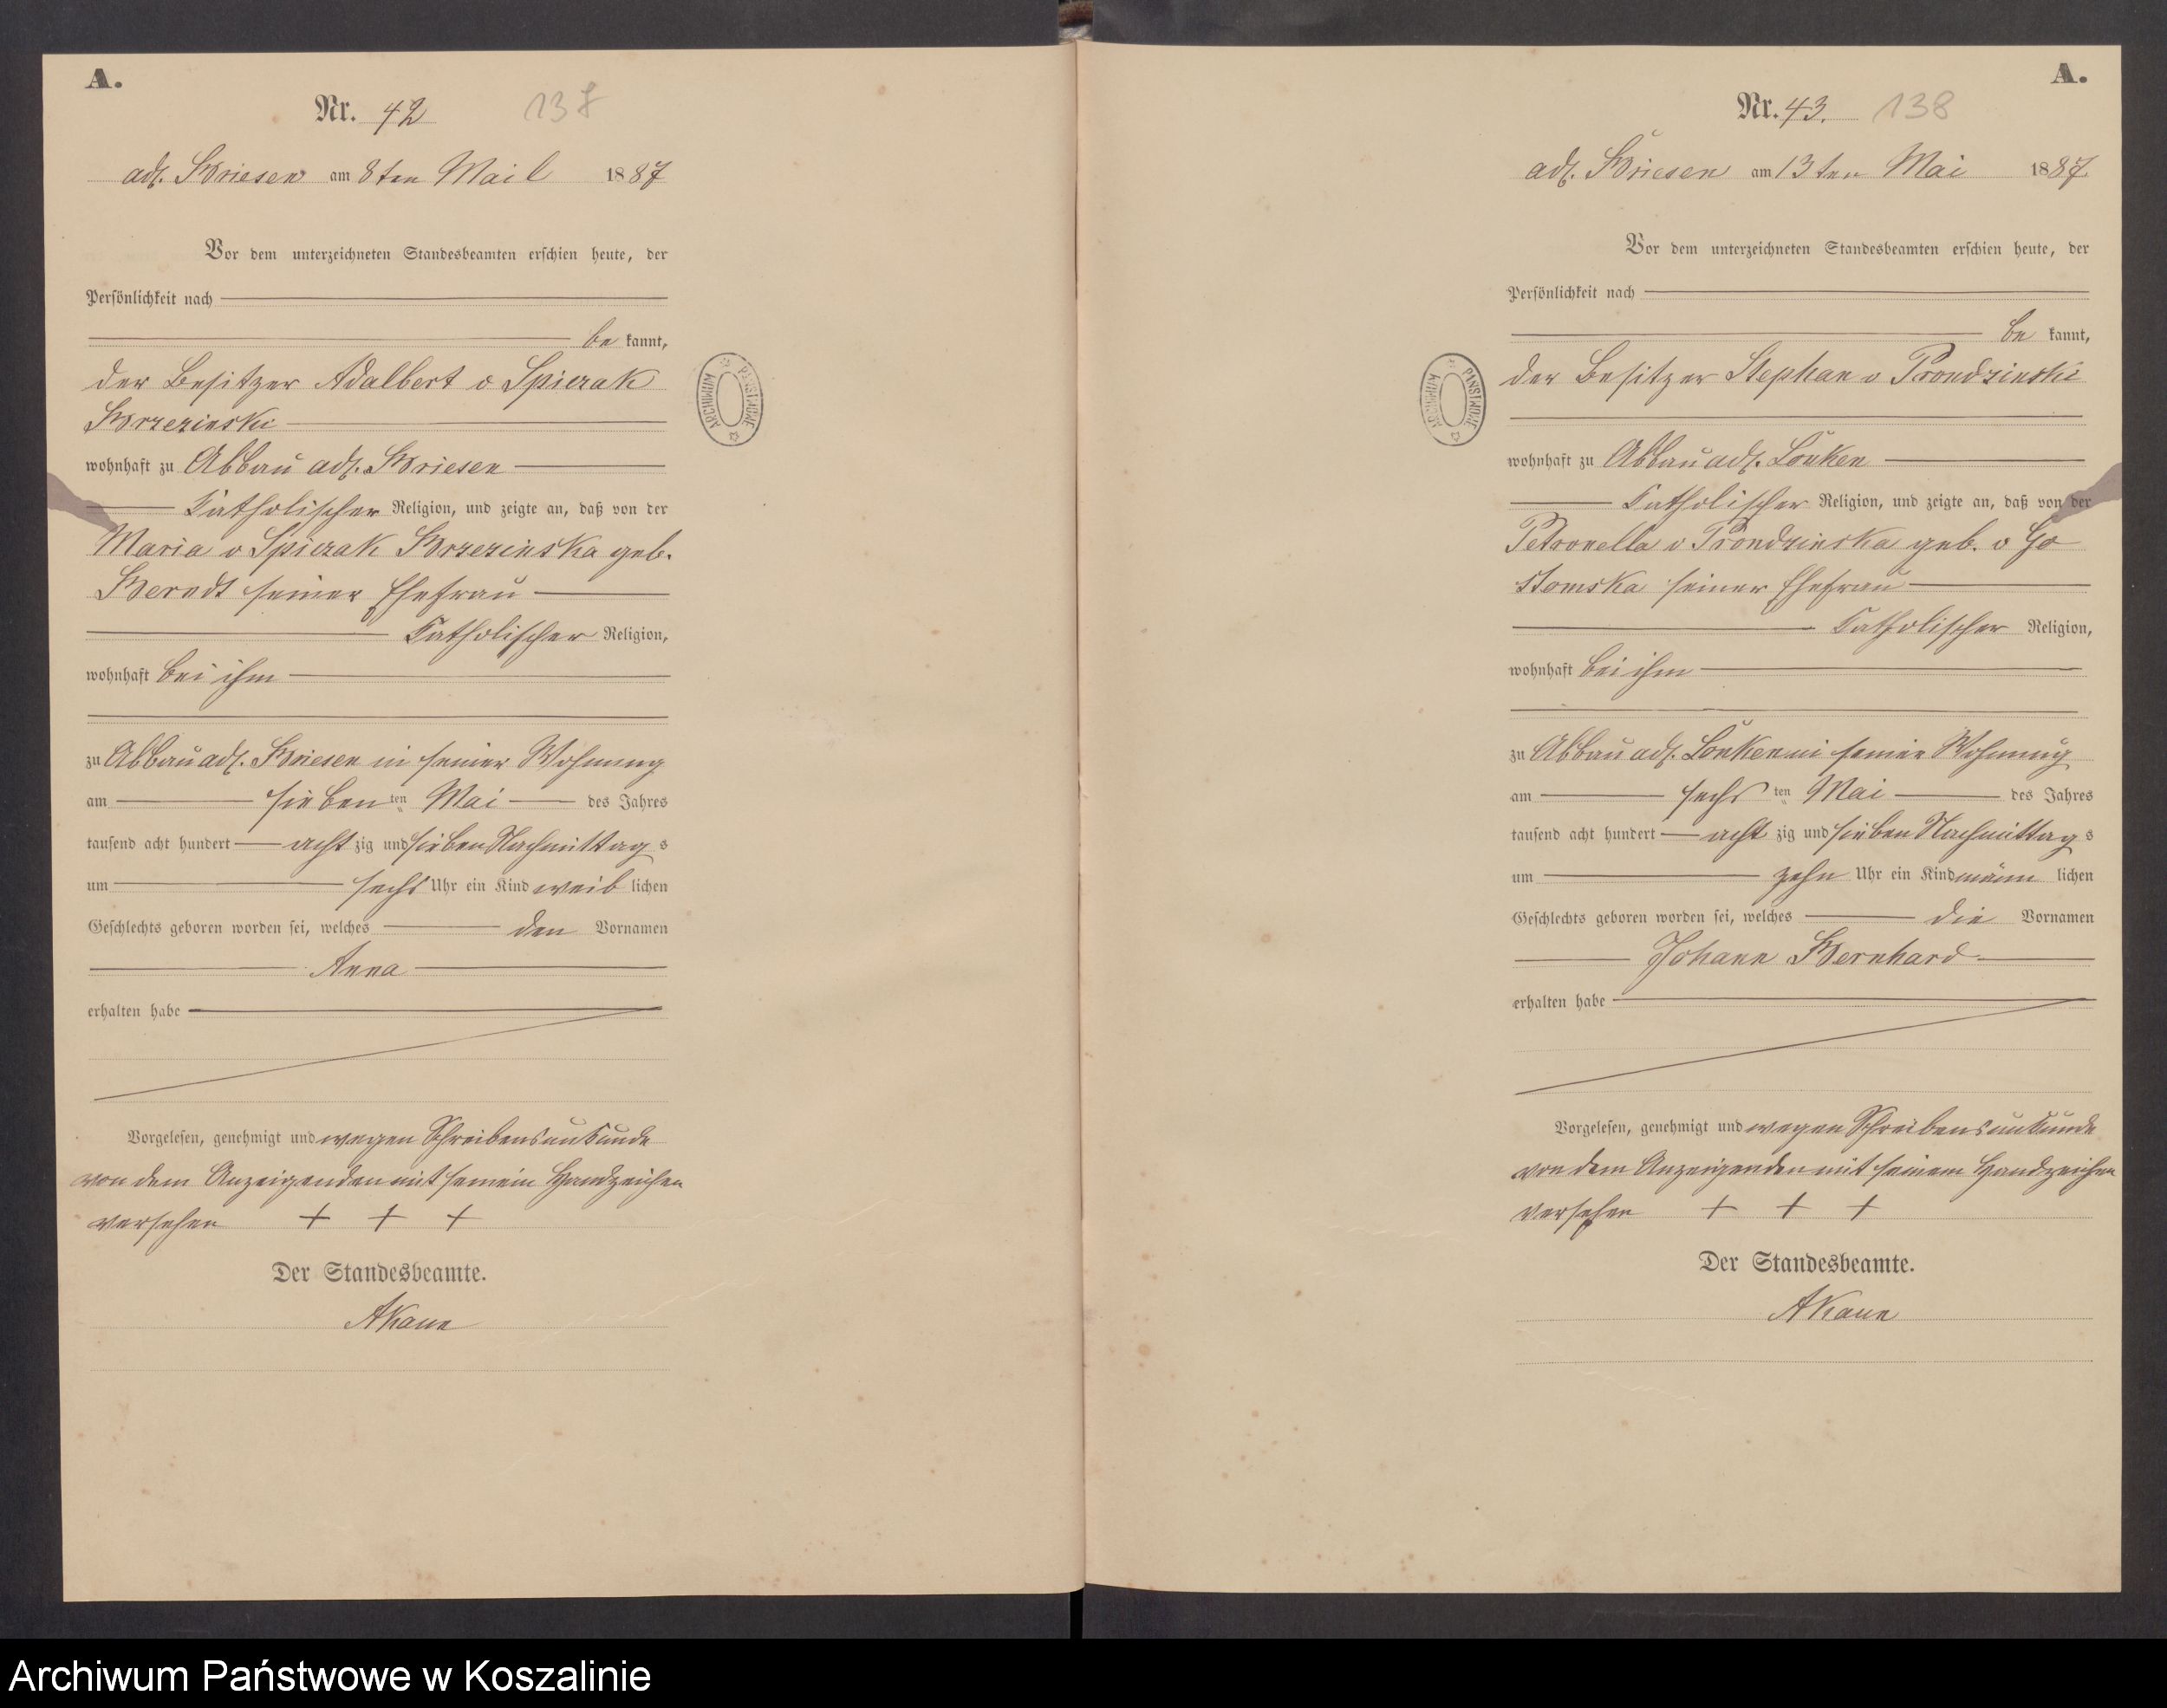 A.
Nr. 42 137
adl. Briesen am 8ten Mai 1887
Vor dem unterzeichneten Standesbeamten erschien heute, der
Persönlichkeit nach
be kannt,
der Besitzer Adalbert v Spiczak
Brzezinski
wohnhaft zu Abbau adl. Briesen
Katholischer Religion, und zeigte an, daß von der
Maria v Spiczak Brzezinska geb.
Berndt seiner Ehefrau
Katholischer Religion,
wohnhaft bei ihm
zu Abbau adl. Briesen in seiner Wohnung
am sieben ten Mai des Jahres
tausend acht hundert acht zig und sieben Nachmittag s
um sechs Uhr ein Kind weib lichen
Geschlechts geboren worden sei, welches den Vornamen
Anna
erhalten habe
Vorgelesen, genehmigt und wegen Schreibensunkunde
von dem Anzeigenden mit seinem Handzeichen
versehen + + +
Der Standesbeamte.
ARCHIWUM PAŃSTWOWE
A.
Nr. 43. 138
adl. Briesen am 13ten Mai 1887
Vor dem unterzeichneten Standesbeamten erschien heute, der
Persönlichkeit nach
be kannt,
der Besitzer Stephan v Prondzinski
wohnhaft zu Abbau adl. Lonken
Katholischer Religion, und zeigte an, daß von der
Petronella v Prondzinska geb. v Go
stomska seiner Ehefrau
Katholischer Religion,
wohnhaft bei ihm
zu Abbau adl. Lonken in seiner Wohnung
am sechs ten Mai des Jahres
tausend acht hundert acht zig und sieben Nachmittag s
um zehn Uhr ein Kind männ lichen
Geschlechts geboren worden sei, welches die Vornamen
Johann Bernhard
erhalten habe
Vorgelesen, genehmigt und wegen Schreibensunkunde
von dem Anzeigenden mit seinem Handzeichen
versehen + + +
Der Standesbeamte.
ARCHIWUM PAŃSTWOWE
Archiwum Państwowe w Koszalinie